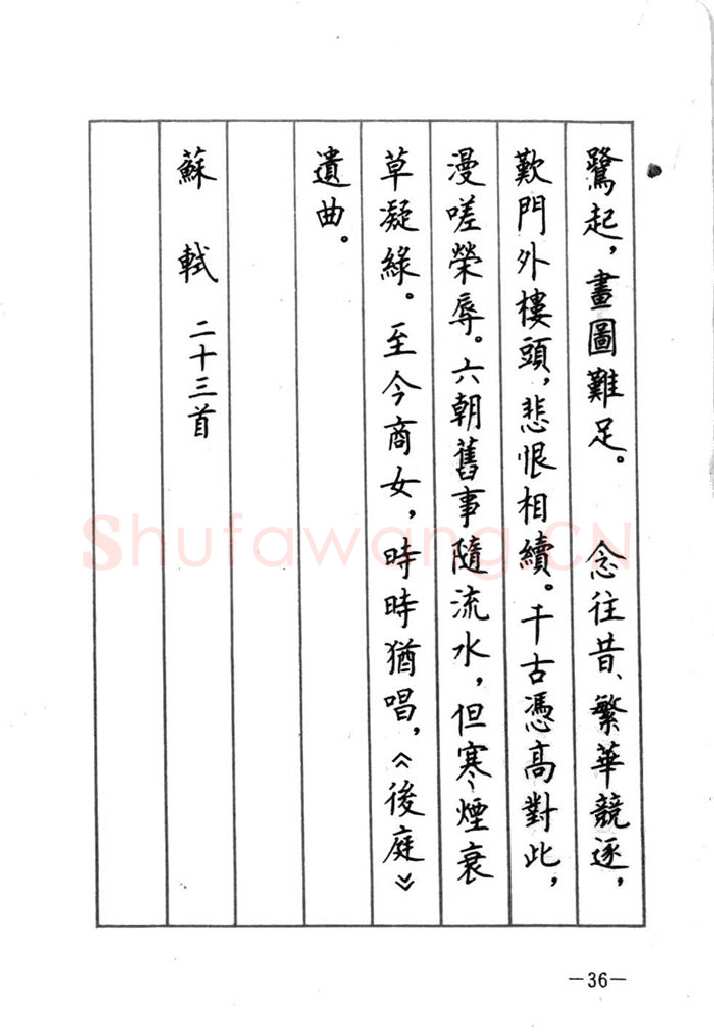 鷺起，畫圖難足。　念往昔、繁華競逐，
歎門外樓頭，悲恨相續。千古憑高對此，
漫嗟榮辱。六朝舊事隨流水，但寒煙衰
草凝綠。至今商女，時時猶唱，《後庭》
遺曲。
蘇　軾　二十三首
Shufawang.CN
—36—